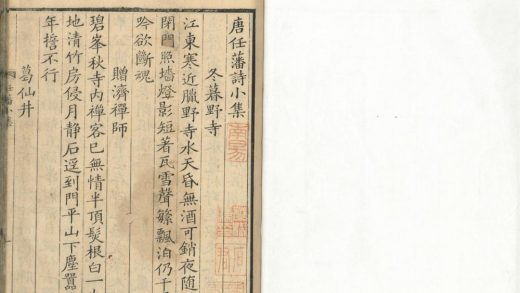 唐任藩詩小集
冬暮野寺
江東寒近臘野寺水天昏無酒可銷夜隨
閉門照墻燈影短著瓦雪聲繁飄泊仍千
吟欲斷魂
贈濟禪師
碧峯秋寺内禪客已無情半頂髮根白一
地清竹房侵月静石逕到門平山下塵囂
年誓不行
葛仙井